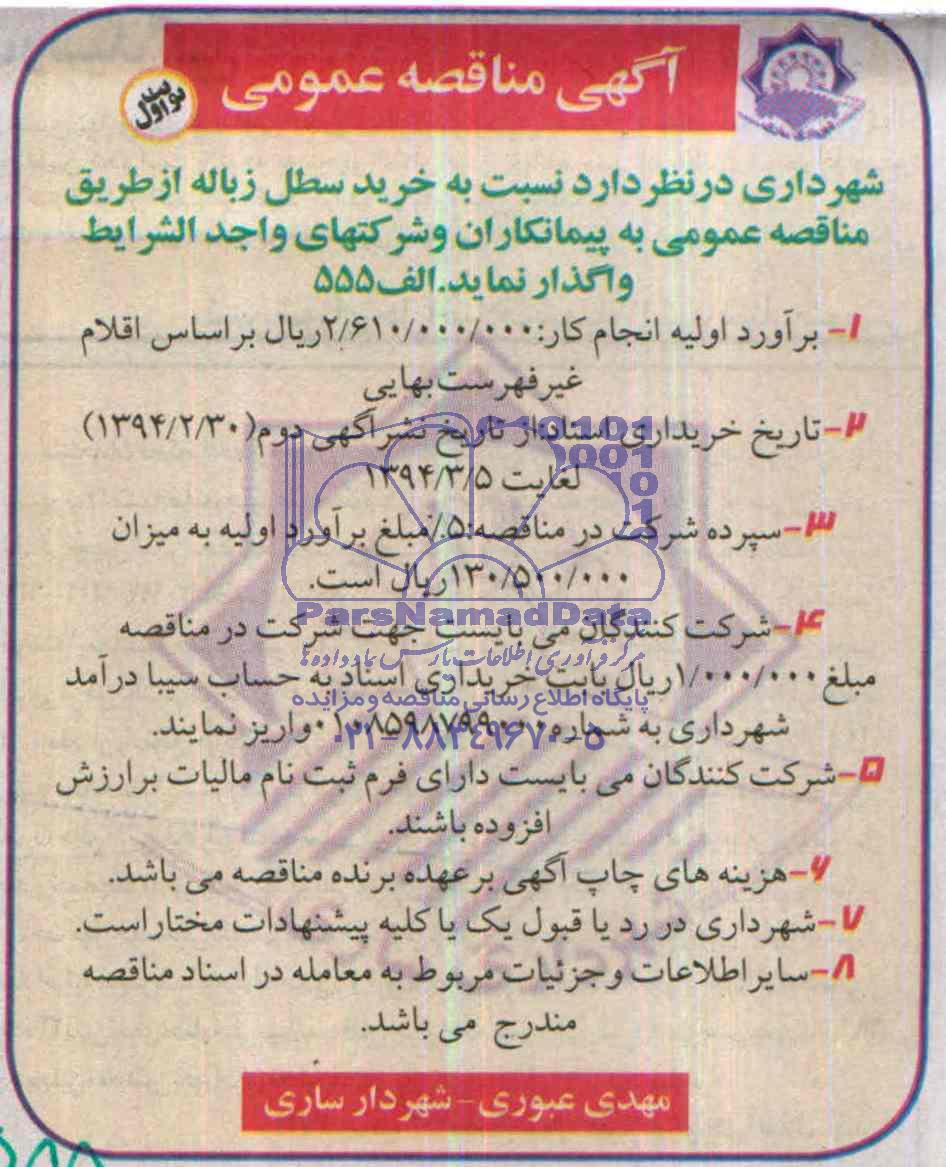 آگهی مناقصه عمومی
نوبت اول
شهرداری درنظر دارد نسبت به خرید سطل زباله از طریق
مناقصه عمومی به پیمانکاران وشرکتهای واجد الشرایط
واگذار نماید.الف۵۵۵
۱- برآورد اولیه انجام کار:۲/۶۱۰/۰۰۰/۰۰۰ریال براساس اقلام
غیرفهرست بهایی
۲-تاریخ خریداری اسناد:از تاریخ نشرآگهی دوم(۱۳۹۴/۲/۳۰)
لغایت ۱۳۹۴/۳/۵
۳-سپرده شرکت در مناقصه:۵٪مبلغ برآورد اولیه به میزان
۱۳۰/۵۰۰/۰۰۰ریال است.
ParsNamadData
۴-شرکت کنندگان می بایست جهت شرکت در مناقصه
مرکز فرآوری اطلاعات پارس نماد داده ها
مبلغ ۱/۰۰۰/۰۰۰ریال بابت خریداری اسناد به حساب سیبا درآمد
پایگاه اطلاع رسانی مناقصه و مزایده
شهرداری به شماره۰۱۰۸۵۹۸۷۹۹۰۰۰واریز نمایند.
۰۲۱-۸۸۳۴۹۶۷۰-۵
۵-شرکت کنندگان می بایست دارای فرم ثبت نام مالیات برارزش
افزوده باشند.
۶-هزینه های چاپ آگهی برعهده برنده مناقصه می باشد.
۷-شهرداری در رد یا قبول یک یا کلیه پیشنهادات مختاراست.
۸-سایراطلاعات وجزئیات مربوط به معامله در اسناد مناقصه
مندرج می باشد.
مهدی عبوری-شهردار ساری